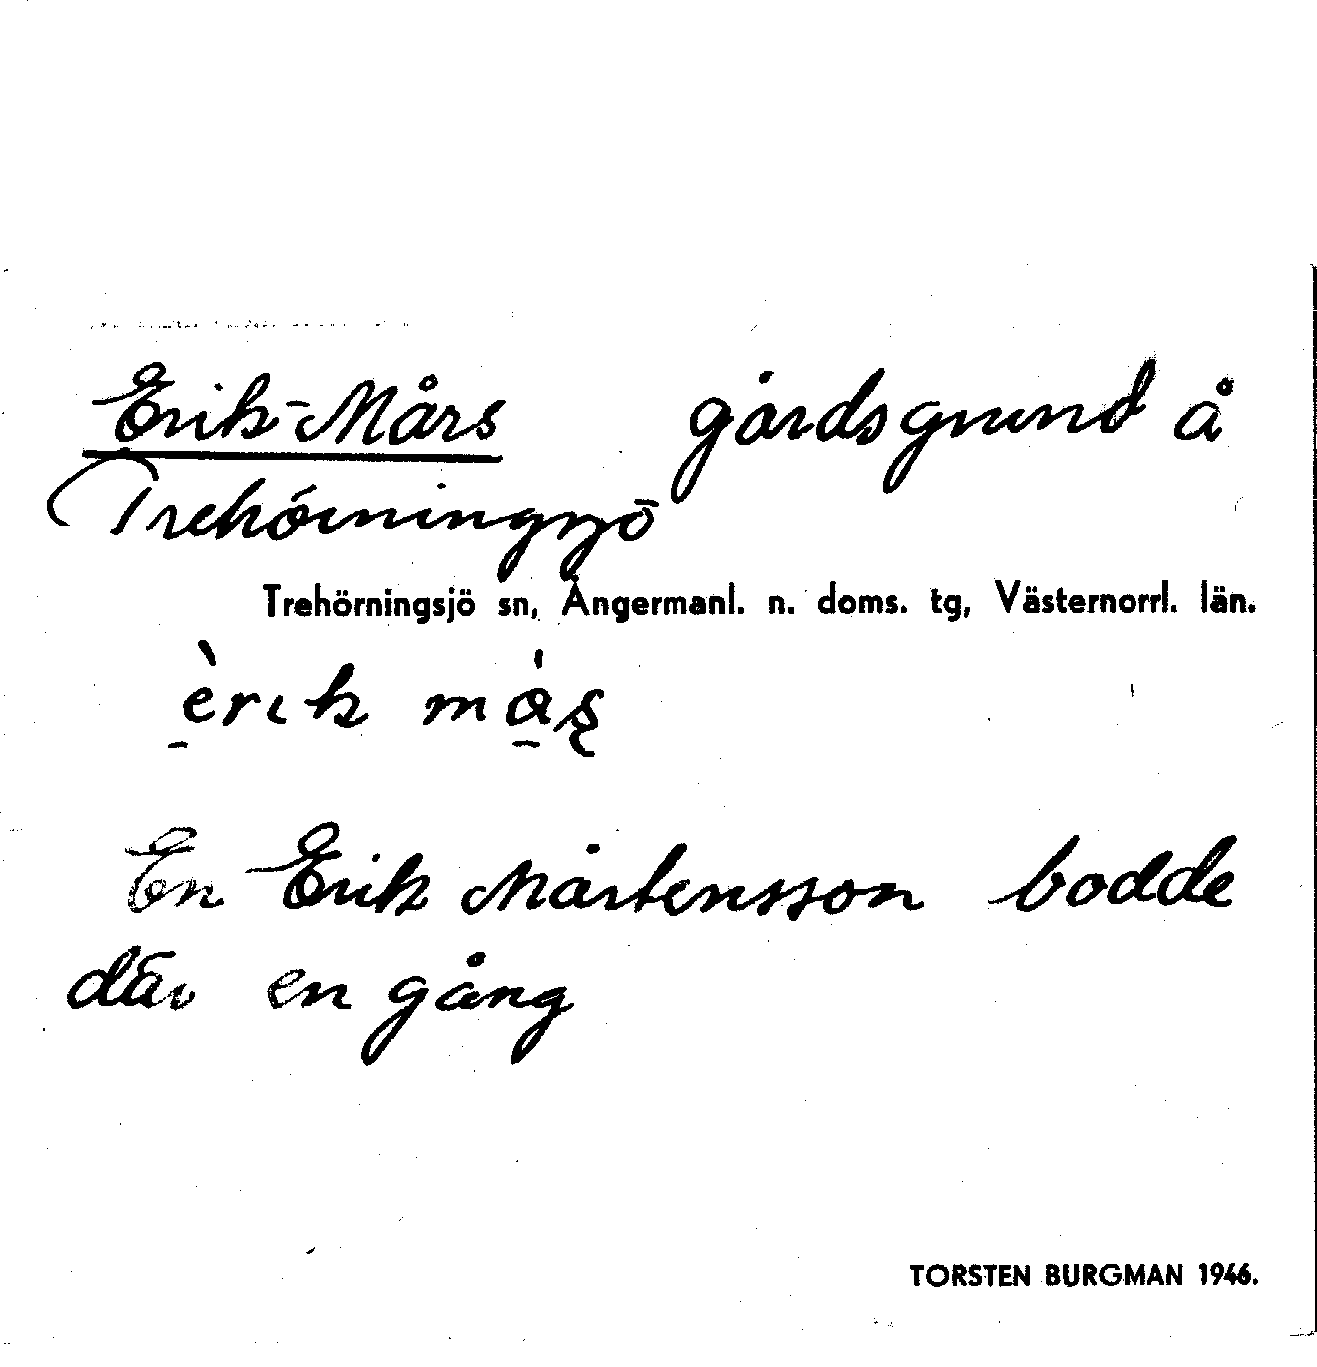 Erik-Mårs gårdsgrund å
Trehörningsjö
Trehörningsjö sn, Ångermanl. n. doms. tg, Västernorrl. län.
èrɩk må̀ʂ
En Erik Mårtensson bodde
där en gång
TORSTEN BURGMAN 1946.